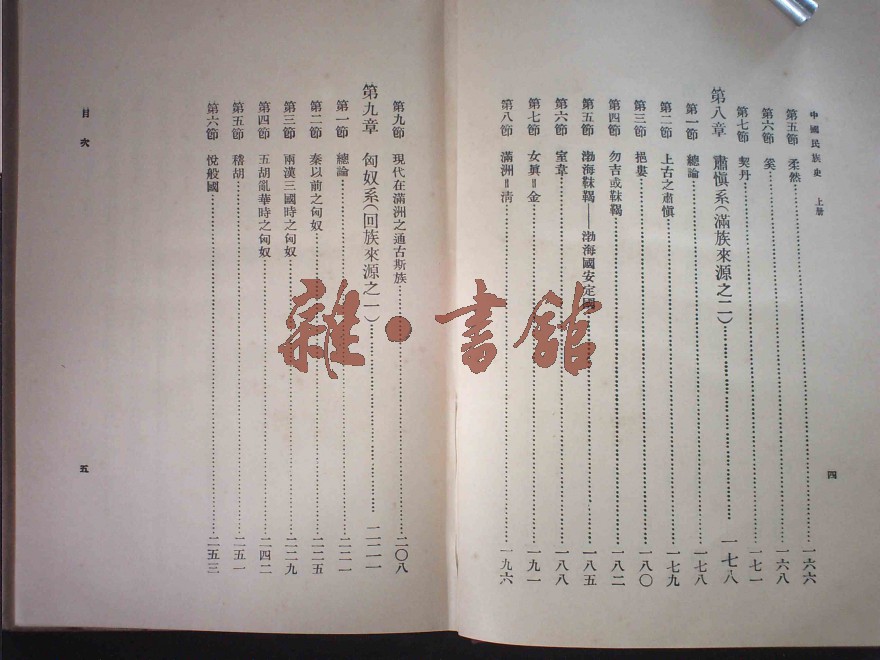 中國民族史 上册
第五節 柔然……一六六
第六節 奚……一六八
第七節 契丹……一七一
第八章 肅愼系(滿族來源之二)……一七八
第一節 總論……一七八
第二節 上古之肅愼……一七九
第三節 挹婁……一八〇
第四節 勿吉或靺鞨……一八二
第五節 渤海靺鞨——渤海國安定國……一八五
第六節 室韋……一八八
第七節 女眞=金……一九一
第八節 滿洲=淸……一九六
四
第九節 現代在滿洲之通古斯族……二〇八
第九章 匈奴系(回族來源之一)……二二一
第一節 總論……二二一
第二節 秦以前之匈奴……二二五
第三節 兩漢三國時之匈奴……二二九
第四節 五胡亂華時之匈奴……二四二
第五節 稽胡……二五一
第六節 悅般國……二五三
目次
五
雜·書館